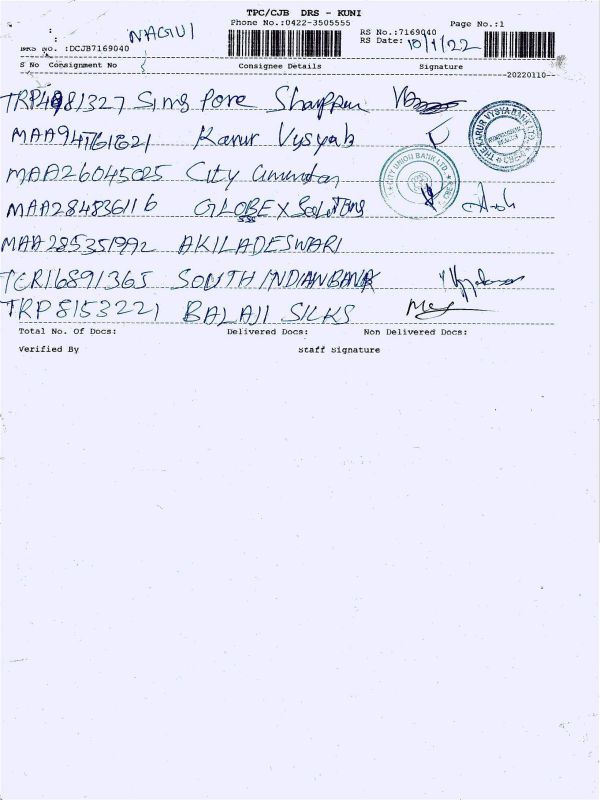 TPC/CJB DRS - KUNI
Phone No.:0422-3505555 Page No.:1
NAGUI RS No.:7169040
RS Date: 10/1/22
DRS No. :DCJB7169040
S No Consignment No Consignee Details Signature
20220110
Sing Pore
THE KARUR VYSYA BANK LTD.
MAA947161621 Karur Vysyab
CITY UNION BANK LTD.
MAA26045025 City
MAA284836116 GLOBEX Solutions
MAA285351992 AKILADESWARI
TCR16891365 SOUTH INDIAN BANK
TRP8153221 BALAJI SILKS
Total No. Of Docs: Delivered Docs: Non Delivered Docs:
Verified By Staff Signature